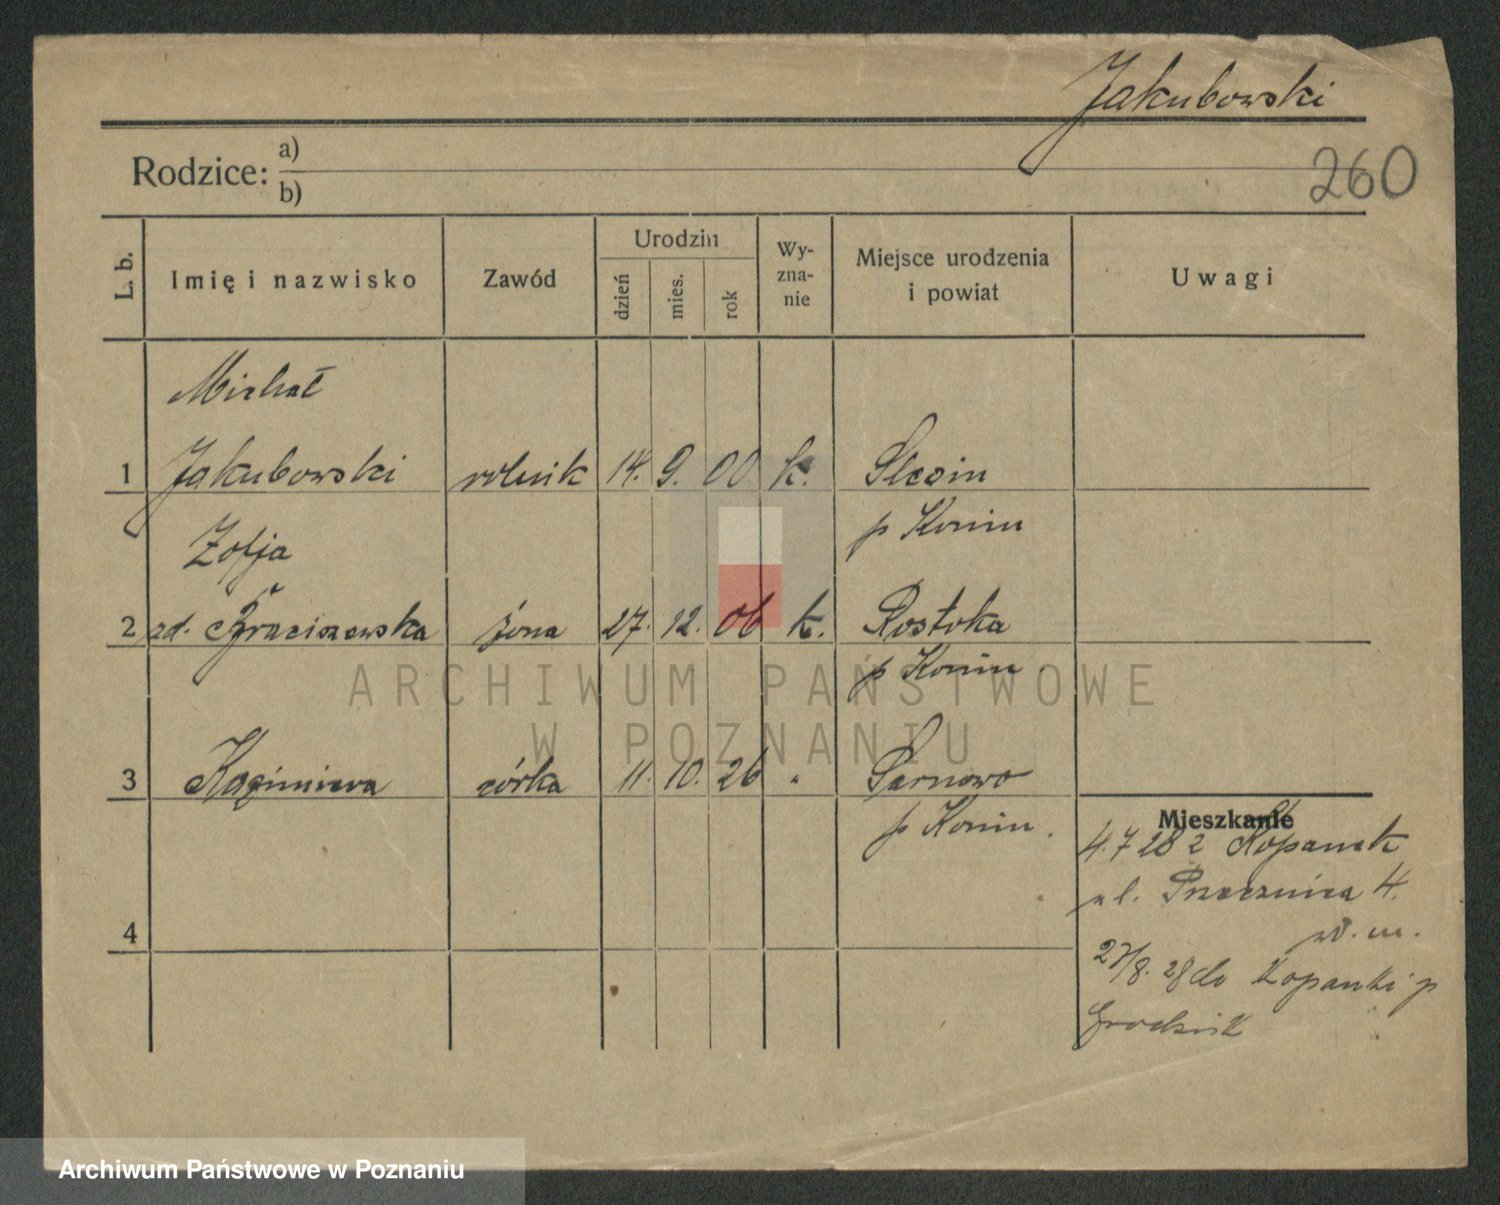 Jakubowski
260
Rodzice: a)
b)
L. b.
Imię i nazwisko
Zawód
Urodzin
dzień
mies.
rok
Wy-
zna-
nie
Miejsce urodzenia
i powiat
Uwagi
Michał
1 Jakubowski rolnik 14. 9. 00 k. Slesin
p Konin
Zofja
2 zd. żona 27. 12. 06 k. Rostoka
p Konin
3 Kazimiera córka 11. 10. 26 " Sarnowo
p Konin.
4
Mieszkanie
4. 7 28 z Kopanek
ul. 4.
w. m.
27/8. 28 do Kopanki p
Grodzisk
ARCHIWUM PAŃSTWOWE
W POZNANIU
Archiwum Państwowe w Poznaniu